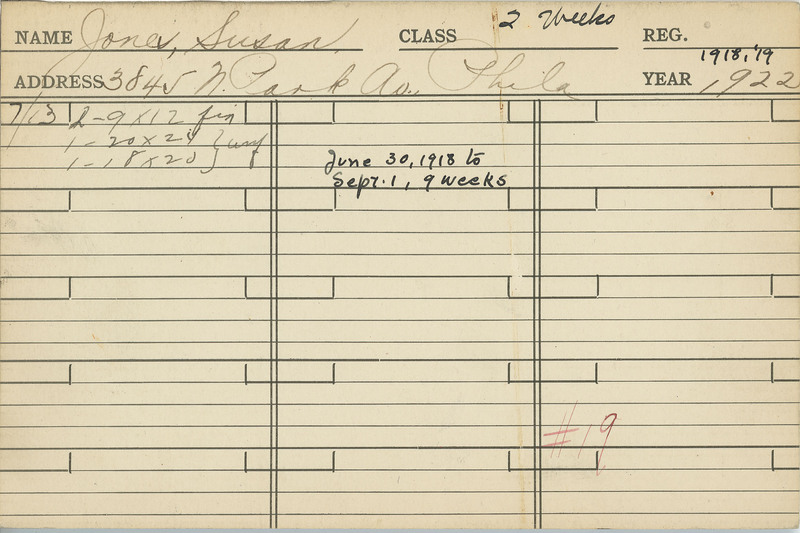 NAME Jones, Susan CLASS 2 Weeks REG. 1918, '19
ADDRESS 3845 N. Park Av., Phila YEAR 1922
7/13 2-9x12 fin
1-20x24 } unf
1-18x20 }
June 30, 1918 to
Sept. 1, 9 weeks
#19